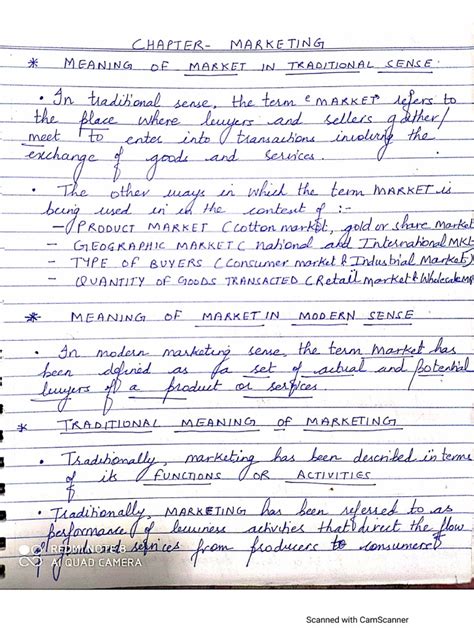 CHAPTER- MARKETING
* MEANING OF MARKET IN TRADITIONAL SENSE:
• In traditional sense, the term "MARKET" refers to
the place where buyers and sellers gather/
meet to enter into transactions involving the
exchange of goods and services.
• The other ways in which the term MARKET is
being used in in the context of :-
- PRODUCT MARKET (cotton market, gold or share market
- GEOGRAPHIC MARKET (National and International MKt
- TYPE OF BUYERS (Consumer market & Industrial Market)
- QUANTITY OF GOODS TRANSACTED (Retail Market & Wholesale
* MEANING OF MARKET IN MODERN SENSE
• In modern marketing sense, the term Market has
been defined as a set of actual and potential
buyers of a product or services.
* TRADITIONAL MEANING OF MARKETING
• Traditionally, marketing has been described in terms
of its FUNCTIONS OR ACTIVITIES
• Traditionally, MARKETING has been referred to as
performance of business activities that direct the flow
of goods and services from producers to consumers
REDMI NOTE 8
AI QUAD CAMERA
Scanned with CamScanner